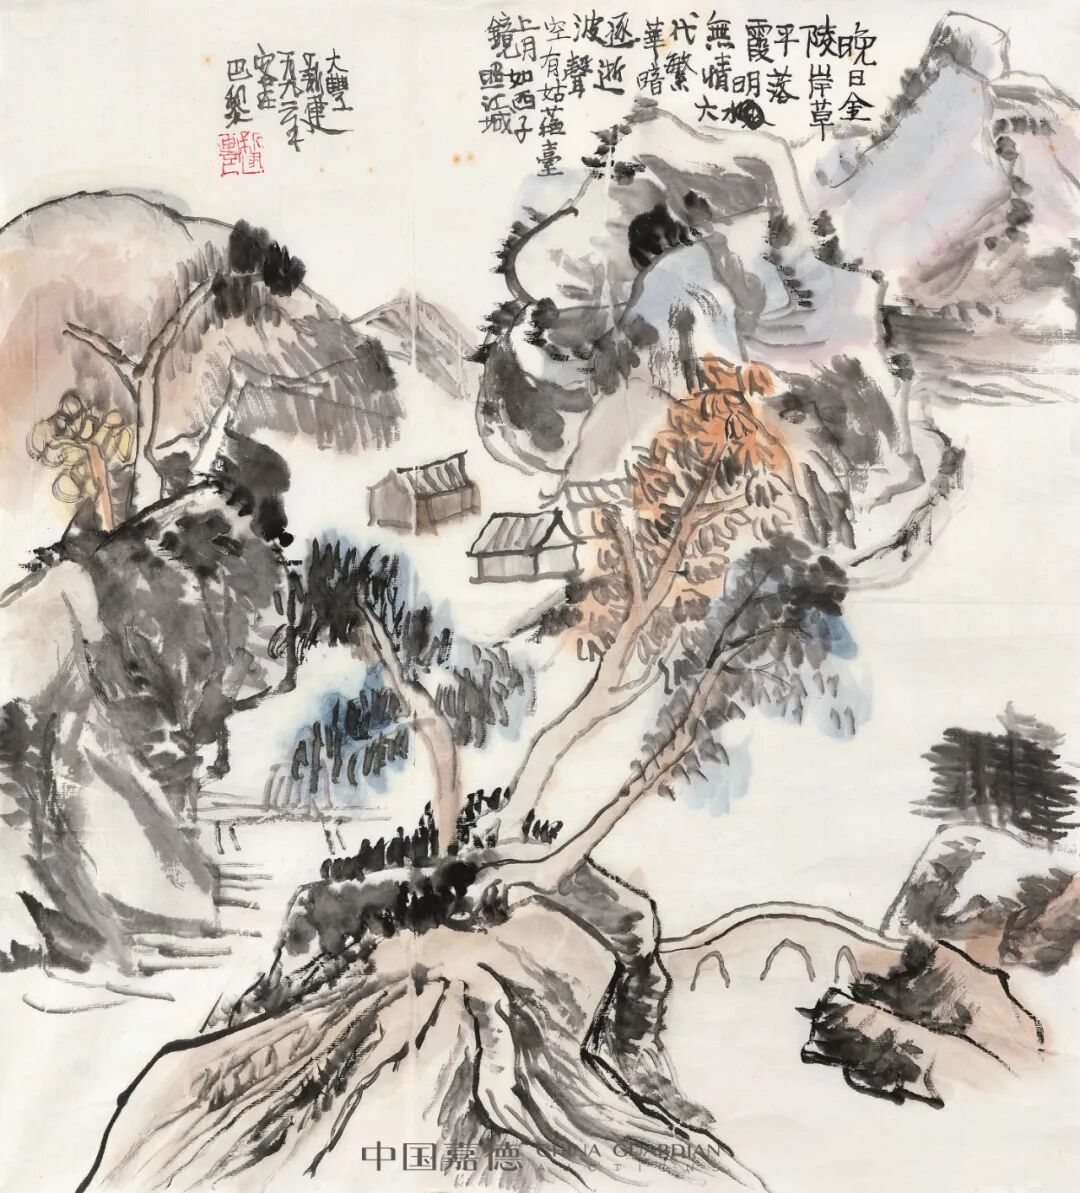 晚日金
陵岸草
平落
霞明水
無情六
代繁
華暗
逐逝
波聲
空有姑蘓臺
上月如西子
鏡照江城
大豐
新建
巴黎
中国嘉德 CHINA GUARDIAN
AUCTIONS